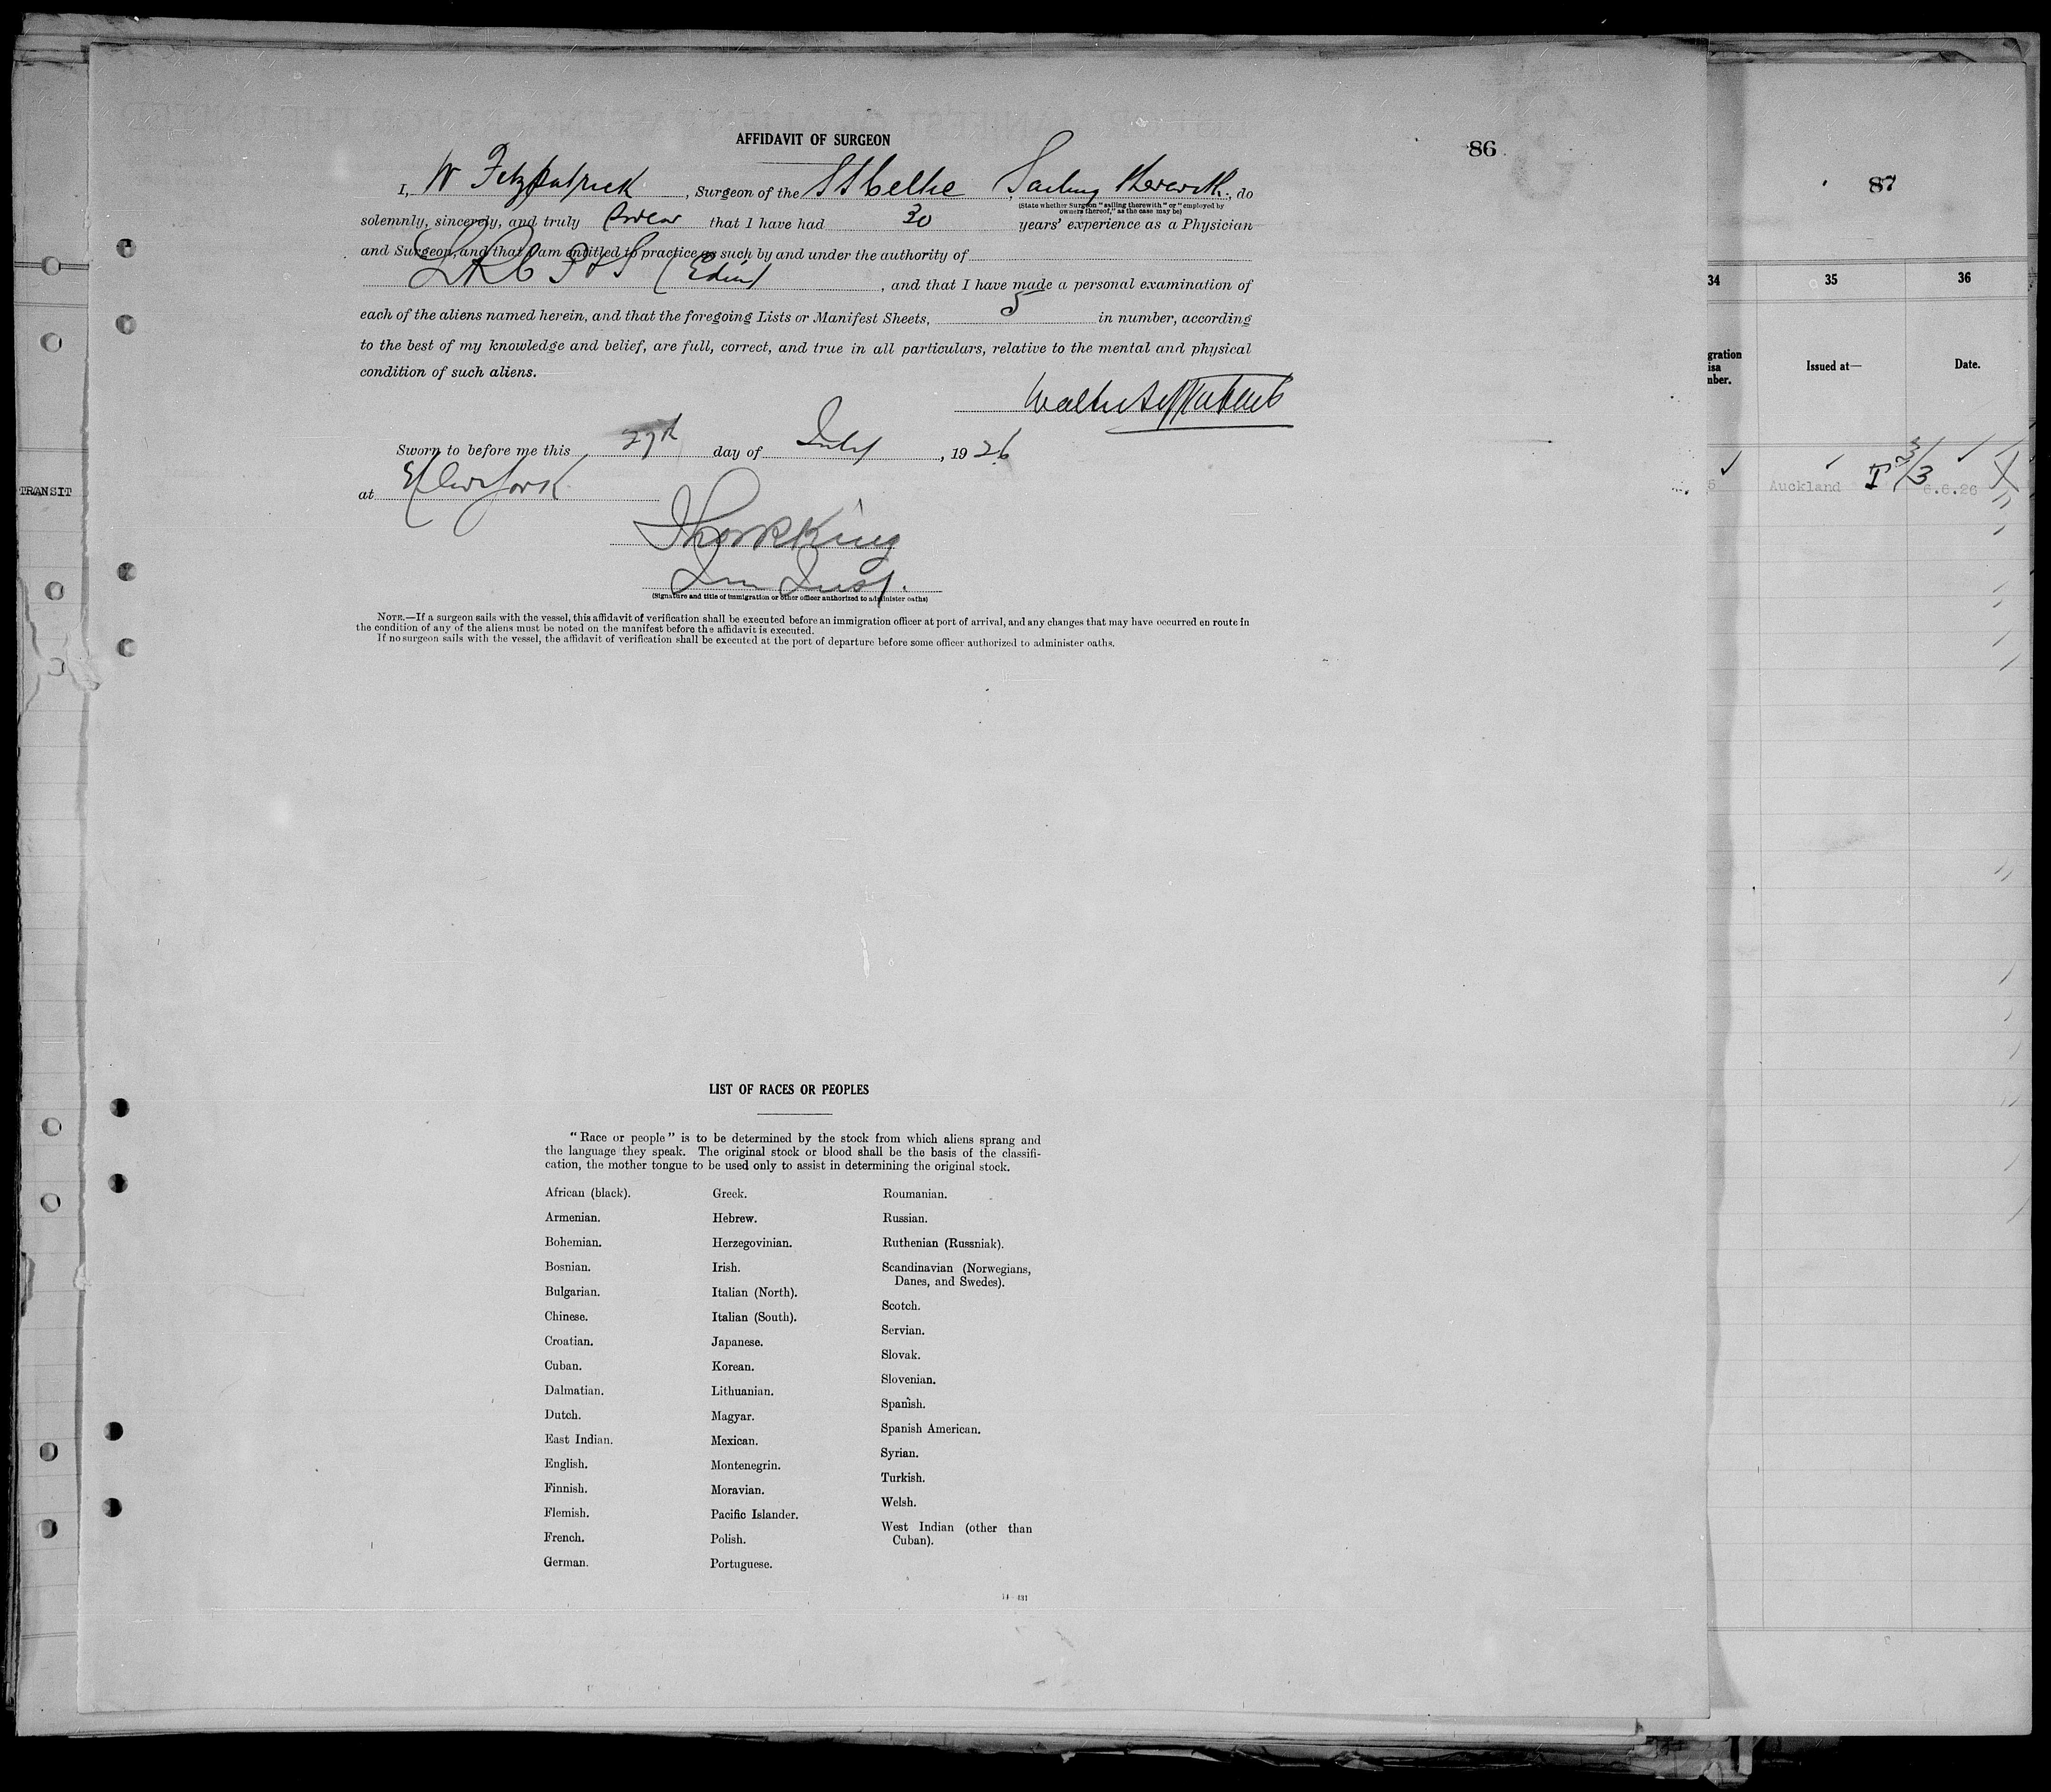 AFFIDAVIT OF SURGEON
86
I, W Fitzpatrick, Surgeon of the SS Celtic, Sailing therewith, do
(State whether Surgeon "sailing therewith" or "employed by
owners thereof," as the case may be)
solemnly, sincerely, and truly swear that I have had 30 years' experience as a Physician
and Surgeon, and that I am entitled to practice as such by and under the authority of
LRCP & S (Edin), and that I have made a personal examination of
each of the aliens named herein, and that the foregoing Lists or Manifest Sheets, 5 in number, according
to the best of my knowledge and belief, are full, correct, and true in all particulars, relative to the mental and physical
condition of such aliens.
Sworn to before me this 27th day of July, 1926
at New York
King
Imm Insp.
(Signature and title of immigration or other officer authorized to administer oaths)
NOTE.—If a surgeon sails with the vessel, this affidavit of verification shall be executed before an immigration officer at port of arrival, and any changes that may have occurred en route in
the condition of any of the aliens must be noted on the manifest before the affidavit is executed.
If no surgeon sails with the vessel, the affidavit of verification shall be executed at the port of departure before some officer authorized to administer oaths.
LIST OF RACES OR PEOPLES
"Race or people" is to be determined by the stock from which aliens sprang and
the language they speak. The original stock or blood shall be the basis of the classifi-
cation, the mother tongue to be used only to assist in determining the original stock.
African (black).
Armenian.
Bohemian.
Bosnian.
Bulgarian.
Chinese.
Croatian.
Cuban.
Dalmatian.
Dutch.
East Indian.
English.
Finnish.
Flemish.
French.
German.
Greek.
Hebrew.
Herzegovinian.
Irish.
Italian (North).
Italian (South).
Japanese.
Korean.
Lithuanian.
Magyar.
Mexican.
Montenegrin.
Moravian.
Pacific Islander.
Polish.
Portuguese.
Roumanian.
Russian.
Ruthenian (Russniak).
Scandinavian (Norwegians,
Danes, and Swedes).
Scotch.
Servian.
Slovak.
Slovenian.
Spanish.
Spanish American.
Syrian.
Turkish.
Welsh.
West Indian (other than
Cuban).
TRANSIT
87
34 35 36
gration
isa
nber.
Issued at—
Date.
5 Auckland 6.6.26